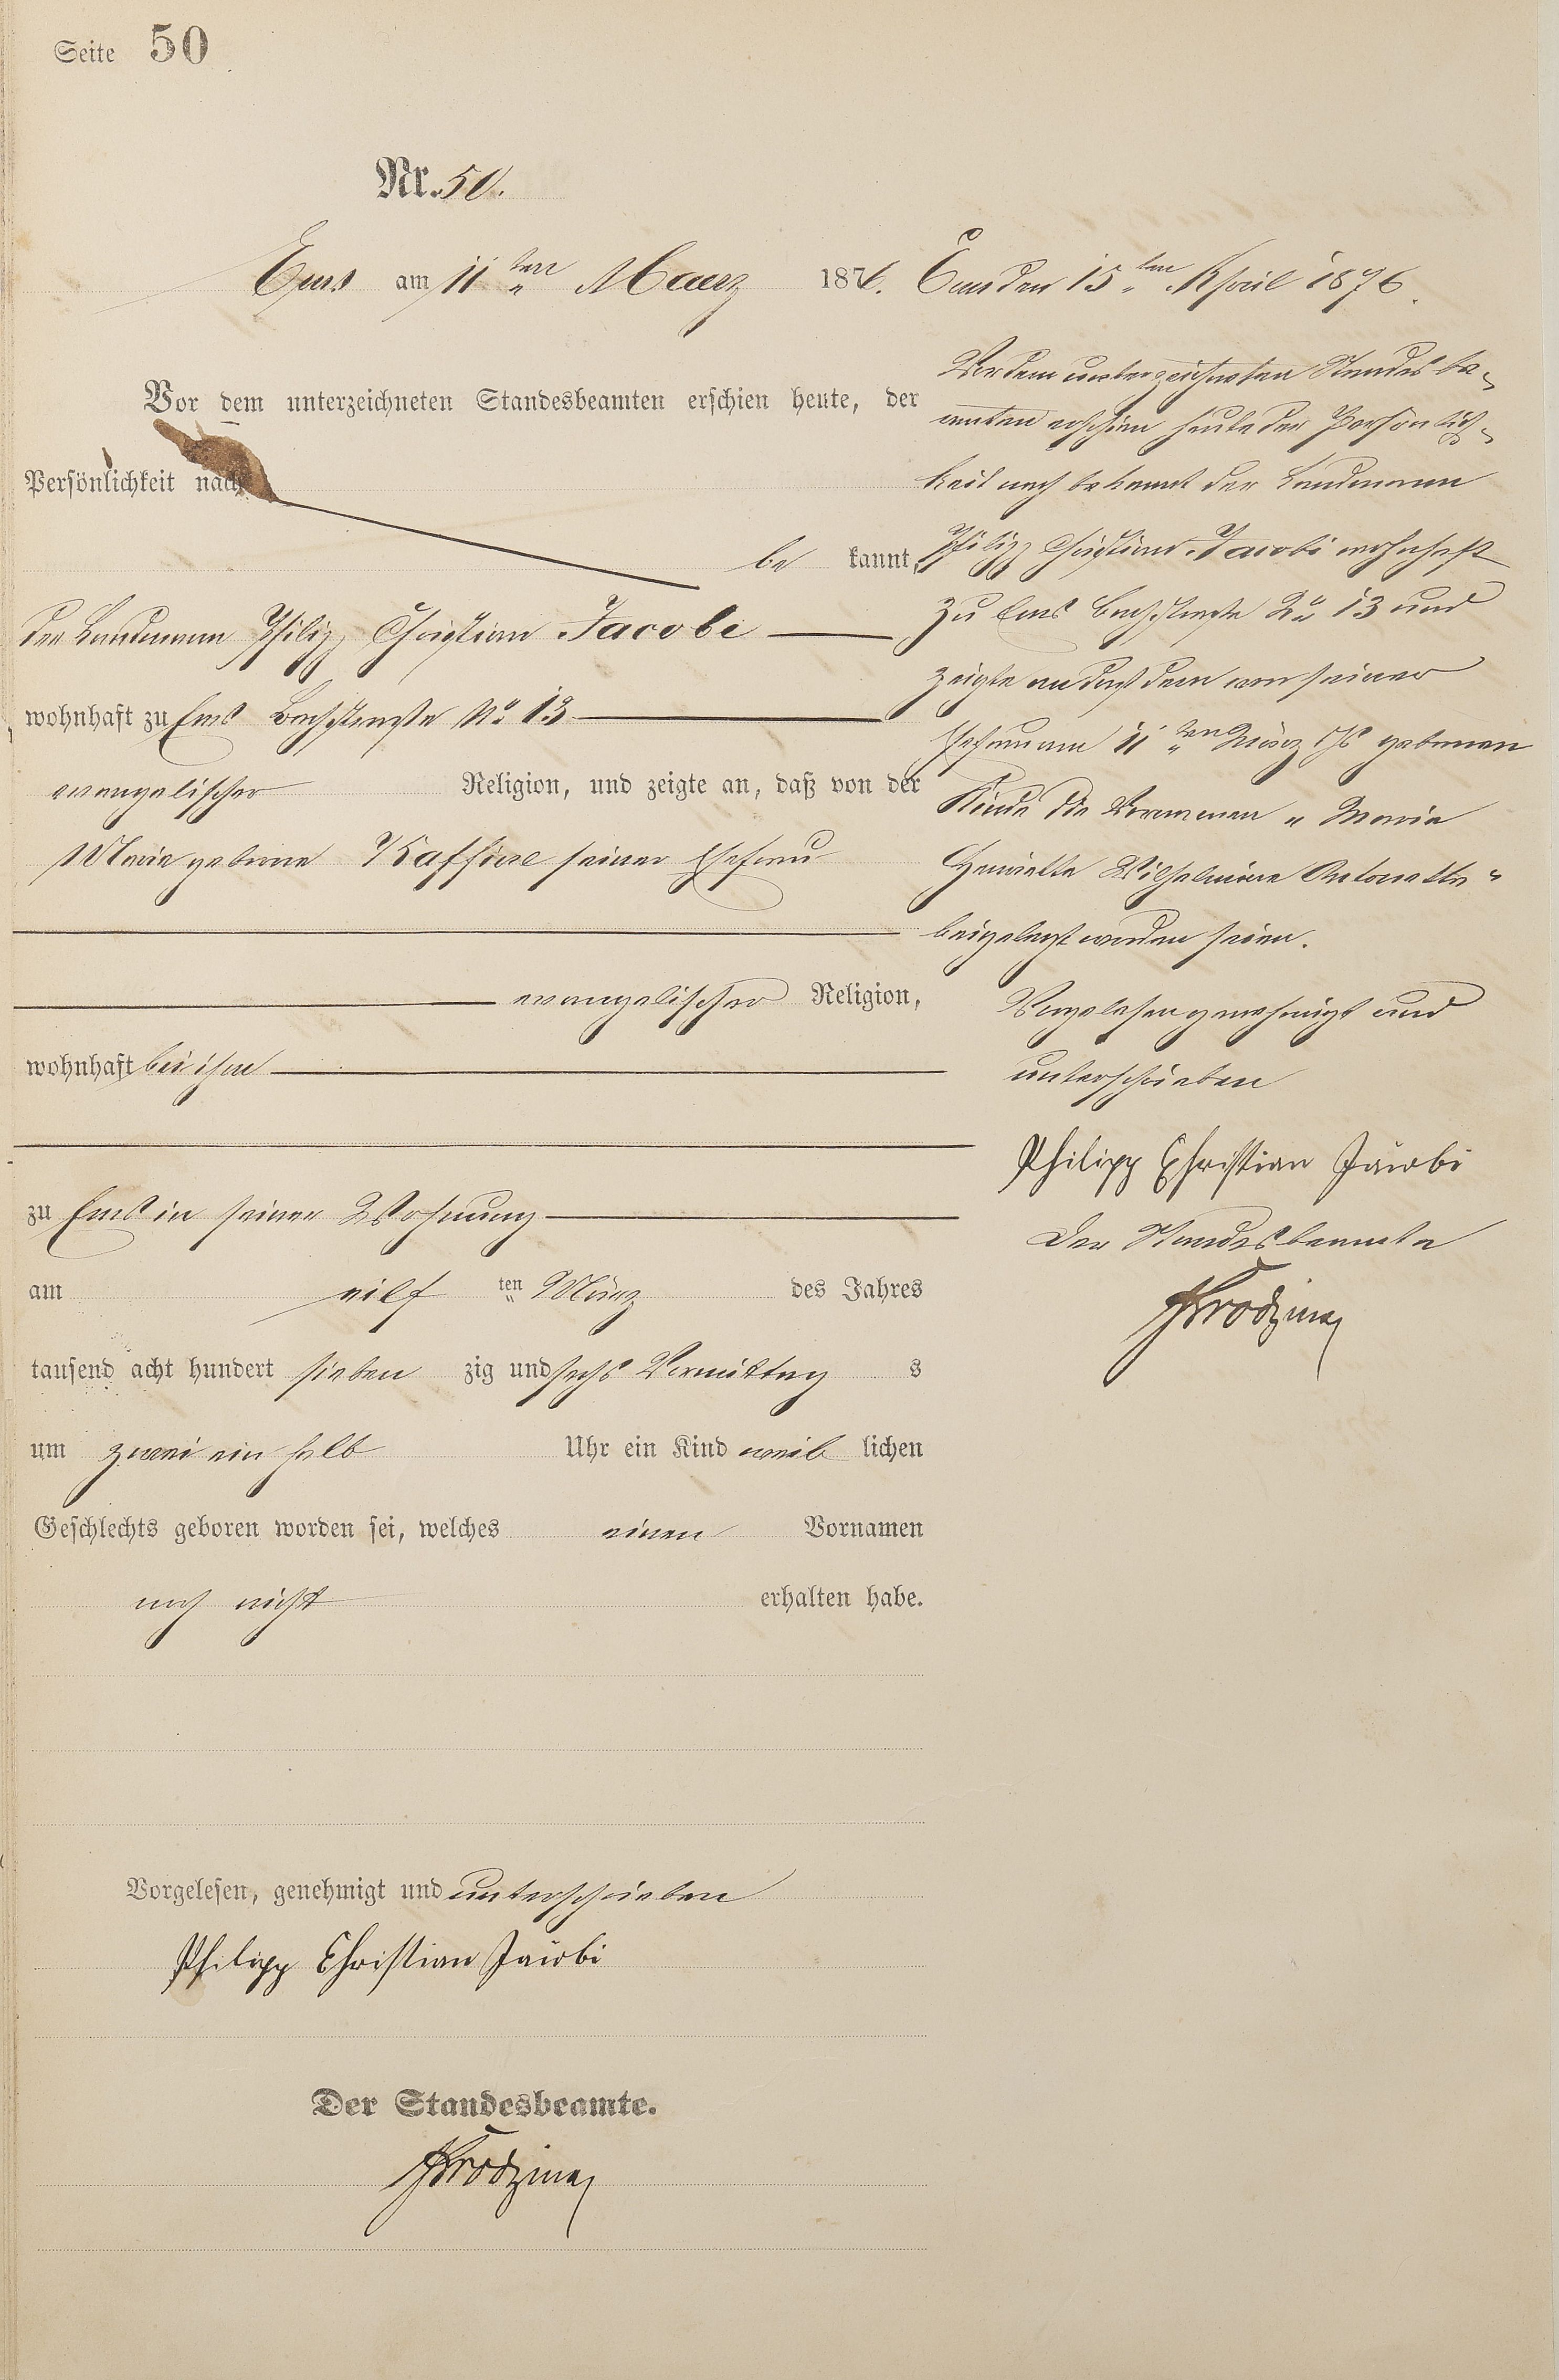 Seite 50
Nr. 50.
Ems am 11ten Maerz 1876.
Vor dem unterzeichneten Standesbeamten erschien heute, der
Persönlichkeit nach
be kannt,
der Landmann Philipp Christian Jacobi
wohnhaft zu Ems Bachstraße No 13
evangelischer Religion, und zeigte an, daß von der
Marie geborne seiner Ehefrau
evangelischer Religion,
wohnhaft bei ihm
zu Ems in seiner Wohnung
am eilf ten März des Jahres
tausend acht hundert sieben zig und sechs Vormittag s
um zwei ein halb Uhr ein Kind weib lichen
Geschlechts geboren worden sei, welches einen Vornamen
noch nicht erhalten habe.
Vorgelesen, genehmigt und unterschrieben
Philipp Christian Jacobi
Der Standesbeamte.
Ems den 15ten April 1876.
Vor dem unterzeichneten Standesbe-
amten erschien heute der Persönlich-
keit nach bekannt der Landmann
Philipp Christian Jacobi wohnhaft
zu Ems Bachstraße No 13 und
zeigte an daß dem von seiner
Ehefrau am 11ten März gebornen
Kinde die Vornamen „Marie
Henriette Wilhelmine Antonette“
beigelegt worden seien.
Vorgelesen genehmigt und
unterschrieben
Philipp Christian Jacobi
Der Standesbeamte